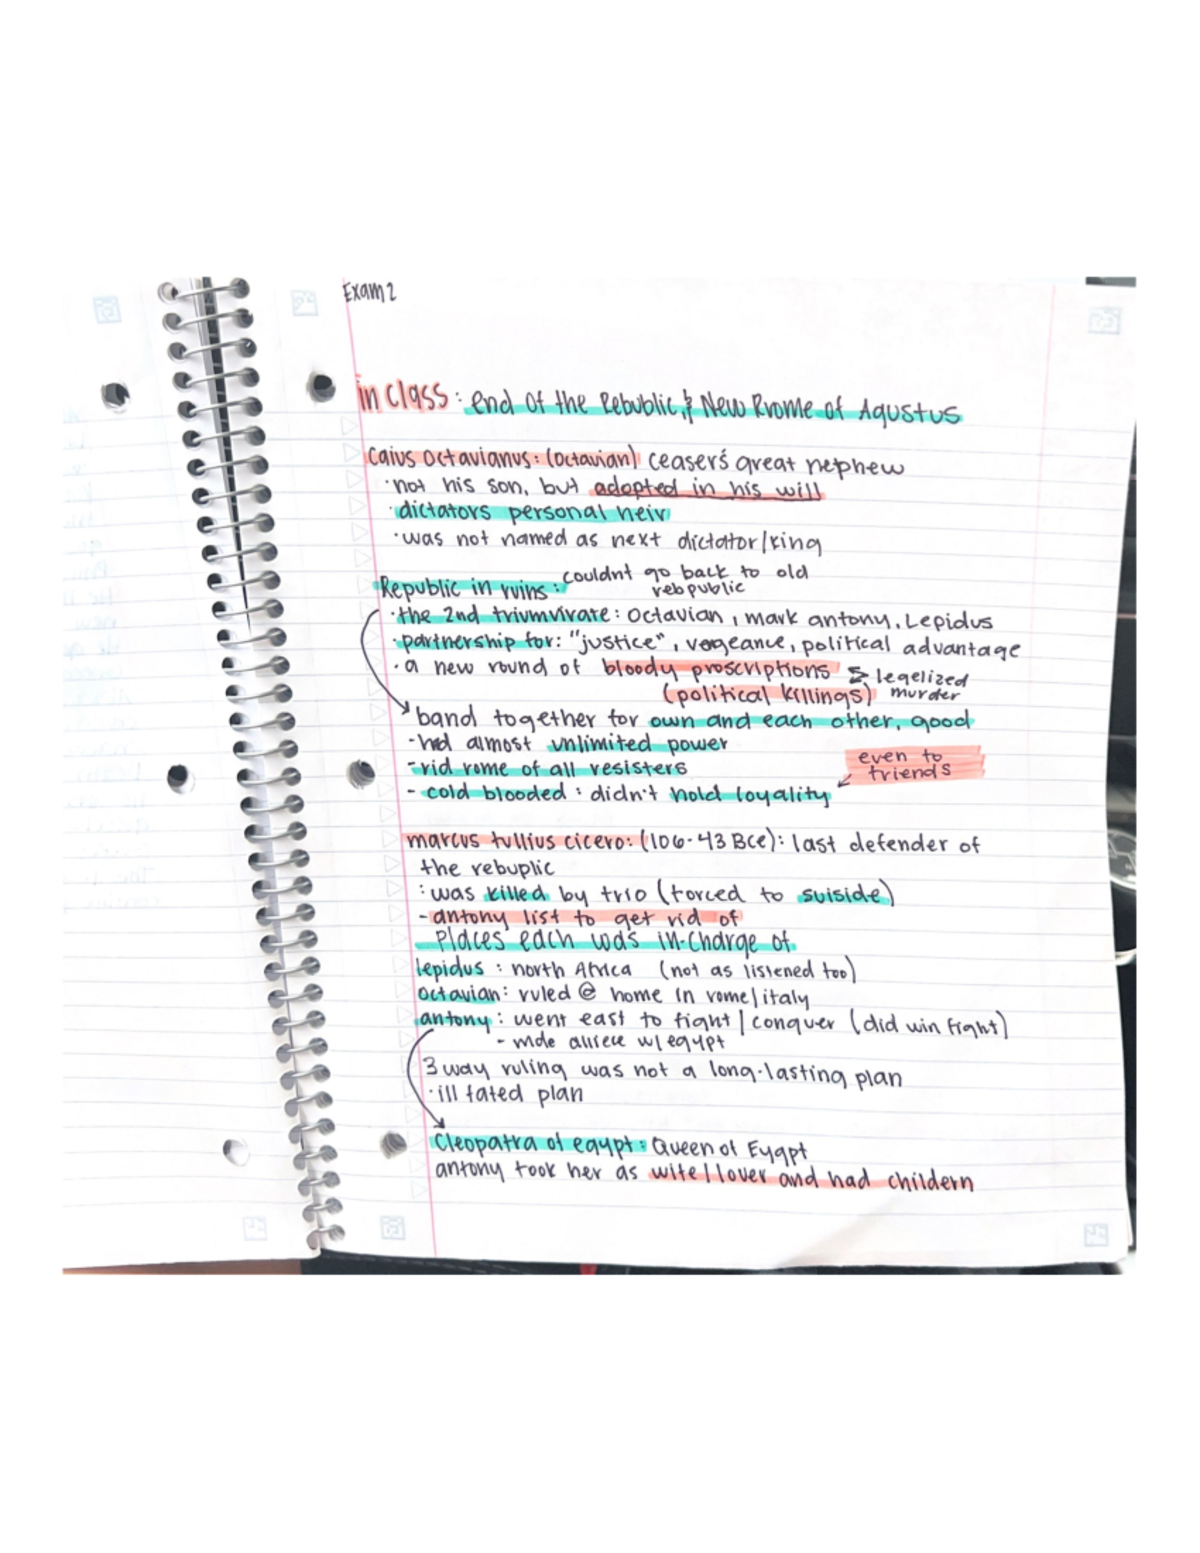 Exam 2
in class: end of the Rebublic & New Rrome of Agustus
Caius Octavianus: (Octavian) ceaser's great nephew
·not his son, but adopted in his will
·dictators personal heir
·was not named as next dictator/king
Republic in ruins: couldnt go back to old
rebpublic
·the 2nd triumvirate: Octavian, mark antony, Lepidus
·partnership for: "justice", vegeance, political advantage
·a new round of bloody proscriptions legelized
(political killings) murder
band together for own and each other, good
-had almost unlimited power
-rid rome of all resisters
even to
friends
- cold blooded: didn't hold loyality
marcus tullius cicero: (106-43 Bce): last defender of
the rebuplic
: was killed by trio (forced to suiside)
-antony list to get rid of
Places each was in-charge of
lepidus: north Africa (not as listened too)
octavian: ruled @ home in rome/italy
antony: went east to fight/conquer (did win fight)
- mde w/ egypt
3 way ruling was not a long-lasting plan
·ill fated plan
Cleopatra of egypt: Queen of Eygpt
antony took her as wife/lover and had childern